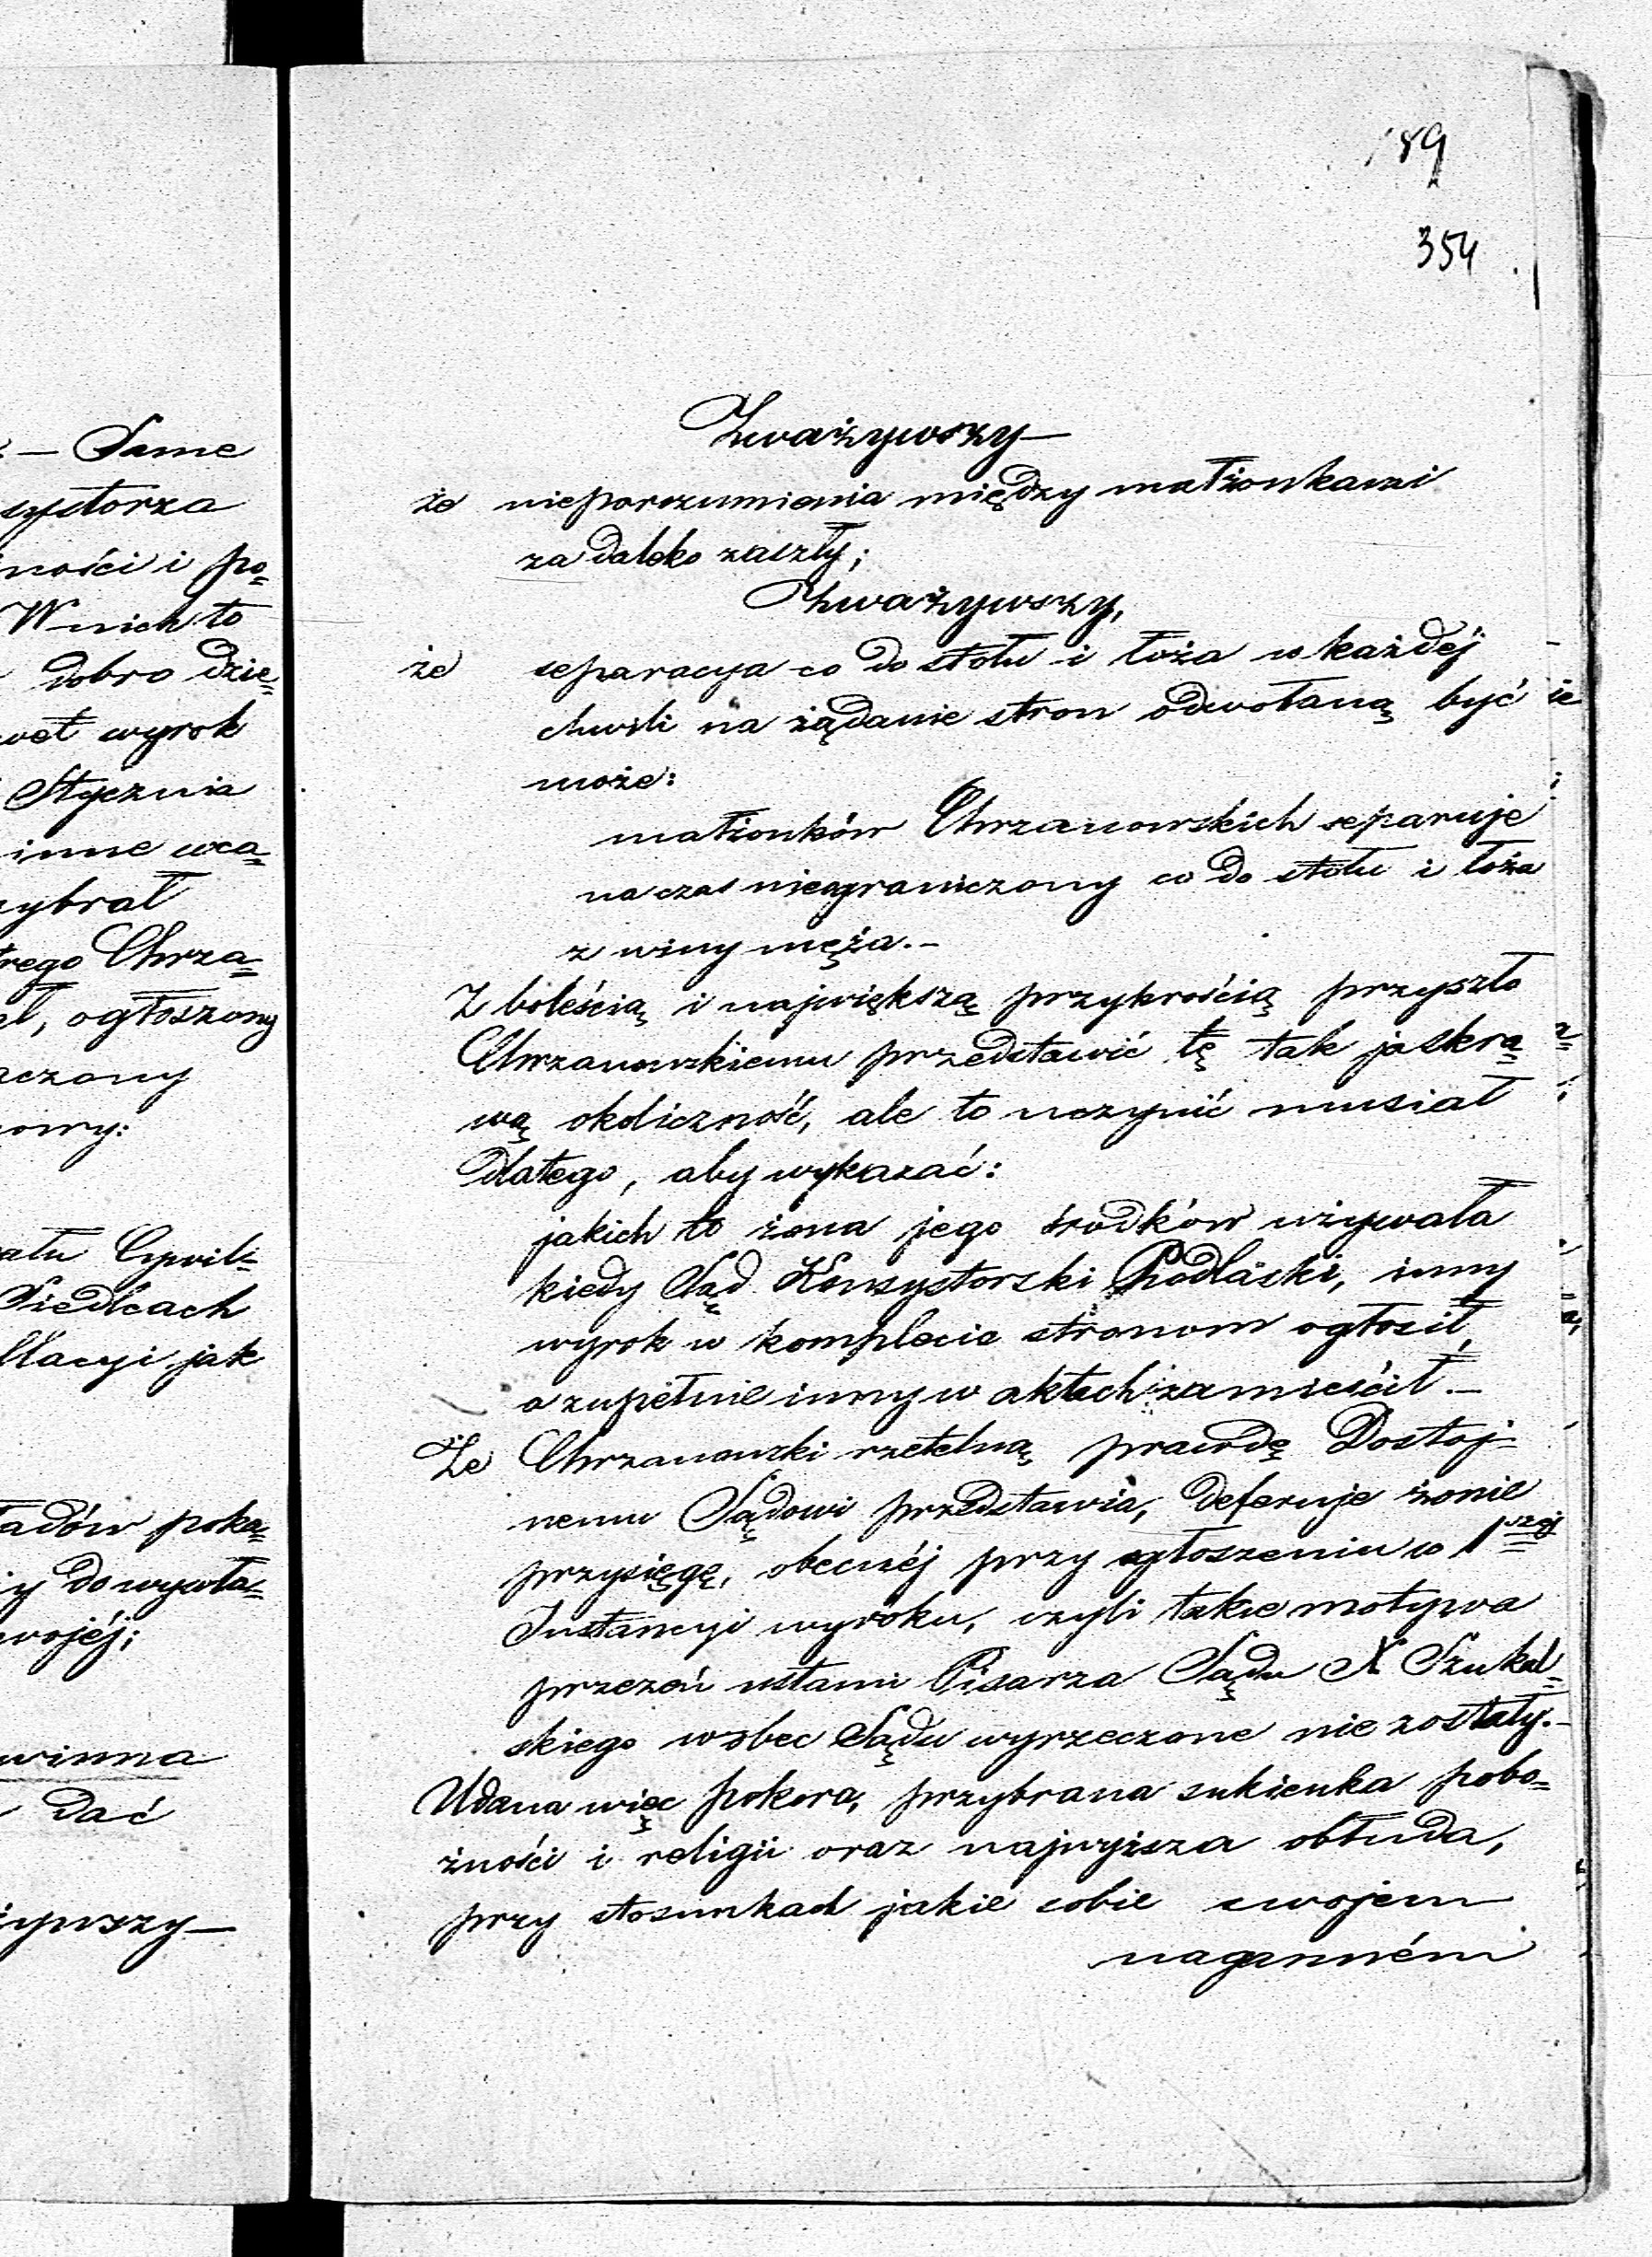 189
354
Zważywszy —
że nieporozumienia między małżonkami
za daleko zaszły;
Zważywszy,
że separacya co do stołu i łoża w każdéj
chwili na żądanie stron odwołaną być
może:
małżonków Chrzanowskich separuje
na czas nieograniczony co do stołu i łoża
z winy męża. –
Z boleścią i największą przykrością przyszło
Chrzanowskiemu przedstawić tę tak jaskra=
wą okoliczność, ale to uczynić musiał
dlatego, aby wykazać:
jakich to żona jego środków używała
kiedy Sąd Konsystorski Podlaski, inny
wyrok w komplecie stronom ogłosił,
a zupełnie inny w aktach zamieścił. –
Że Chrzanowski rzetelną prawdę Dostoj=
nemu Sądowi przedstawia, deferuje żonie
przysięgę, obecnéj przy ogłoszeniu w 1széj
Instancyi wyroku, czyli takie motywa
przezeń ustami Pisarza Sądu X Szukal=
skiego wobec Sądu wyrzeczone nie zostały. –
Udana więc pokora, przybrana sukienka pobo=
żności i religii oraz najwyższa obłuda,
przy stosunkach jakie sobie swojem
naganném
— Same
systorza
ności i po=
W nich to
dobro dzie=
wet wyrok
Stycznia
inne wca=
wybrał
trego Chrza=
ał, ogłoszony
aczony
owy:
ału Cywil=
Siedlcach
llacyi jak
ładów poka=
y do wywoła=
wojéj;
winna
dać
żywszy —